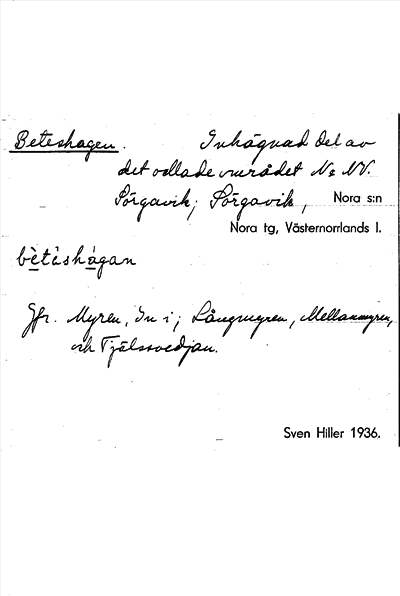 Beteshagen. Inhägnad del av
det odlade området N o NV.
Sörgavik; Sörgavik, Nora s:n
Nora tg, Västernorrlands l.
bètèshágan
Jfr. Myren, In i; Långmyren, Mellanmyren,
och Tjälsvedjan.
Sven Hiller 1936.